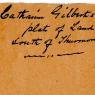 Catharin Gilbert's
plat of Land
south of Thurmon